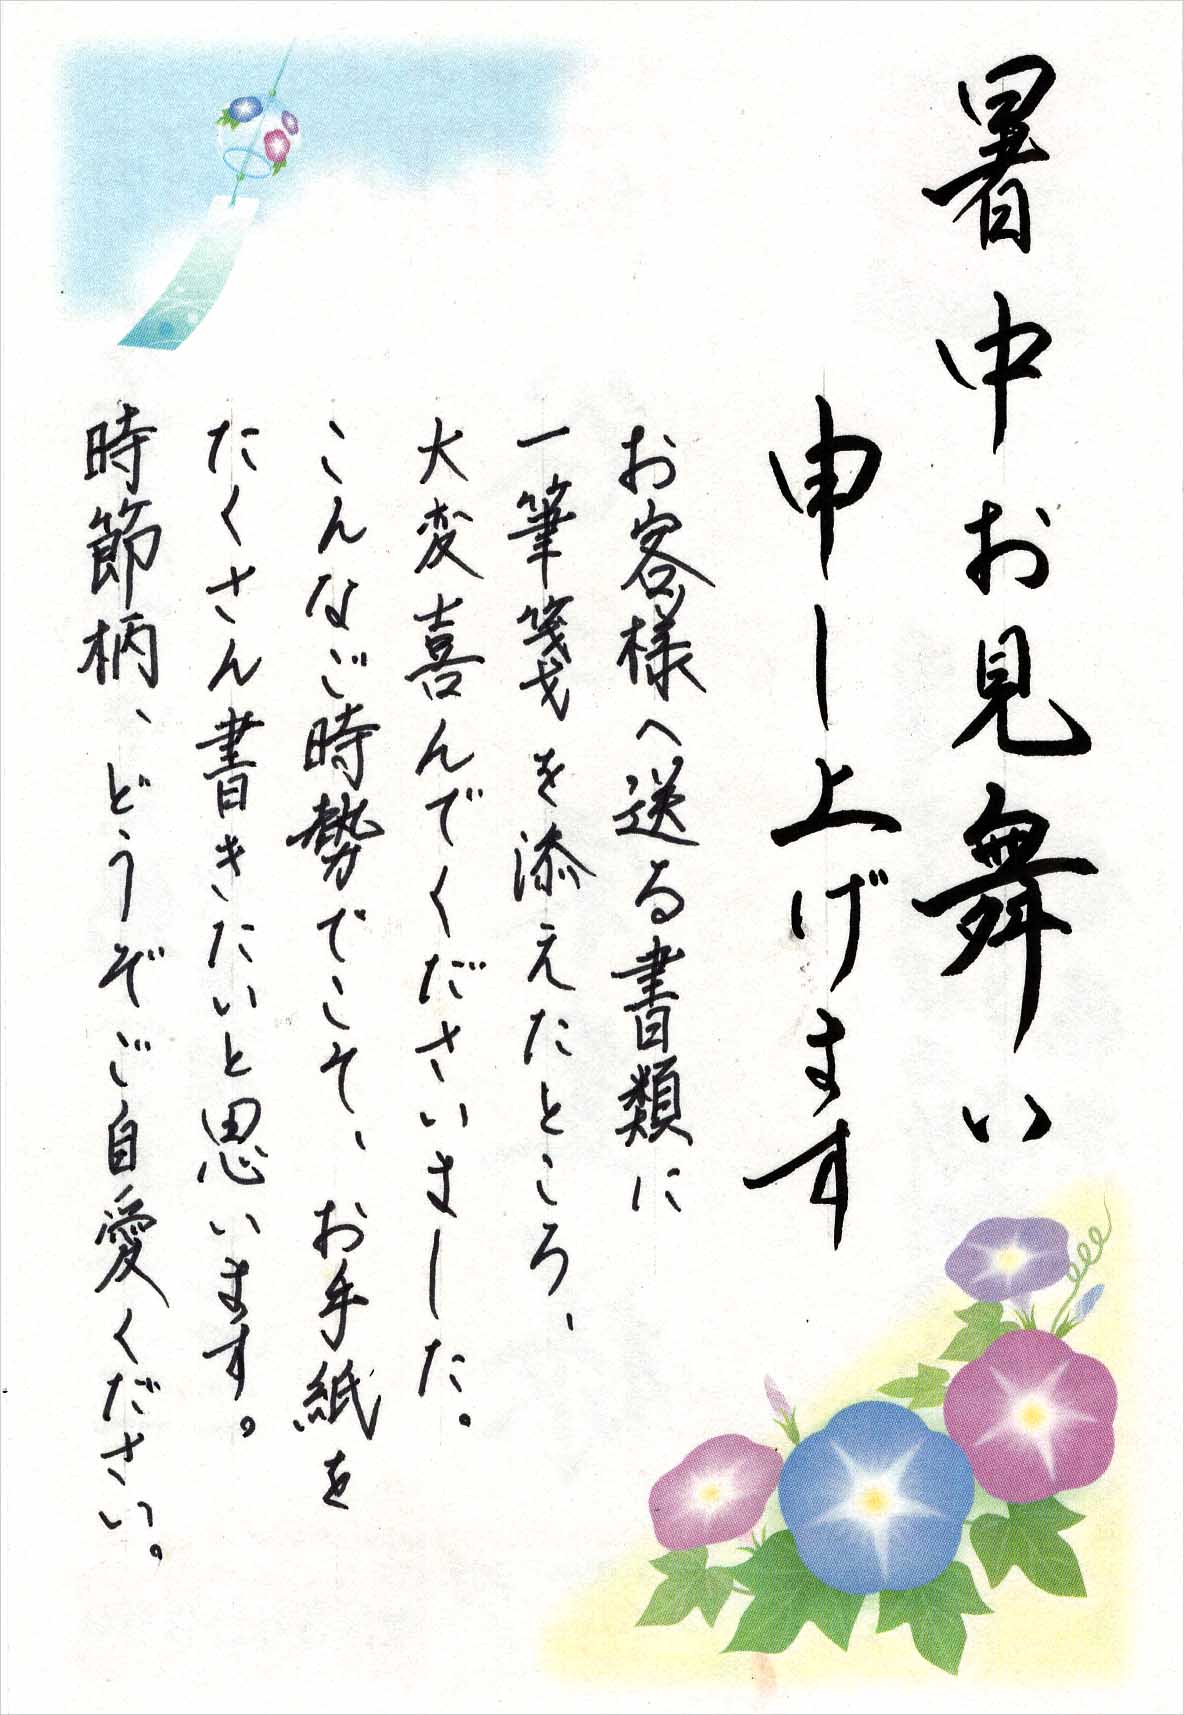 暑中お見舞い
申し上げます
お客様へ送る書類に
一筆箋を添えたところ、
大変喜んでくださいました。
こんなご時勢でこそ、お手紙を
たくさん書きたいと思います。
時節柄、どうぞご自愛ください。